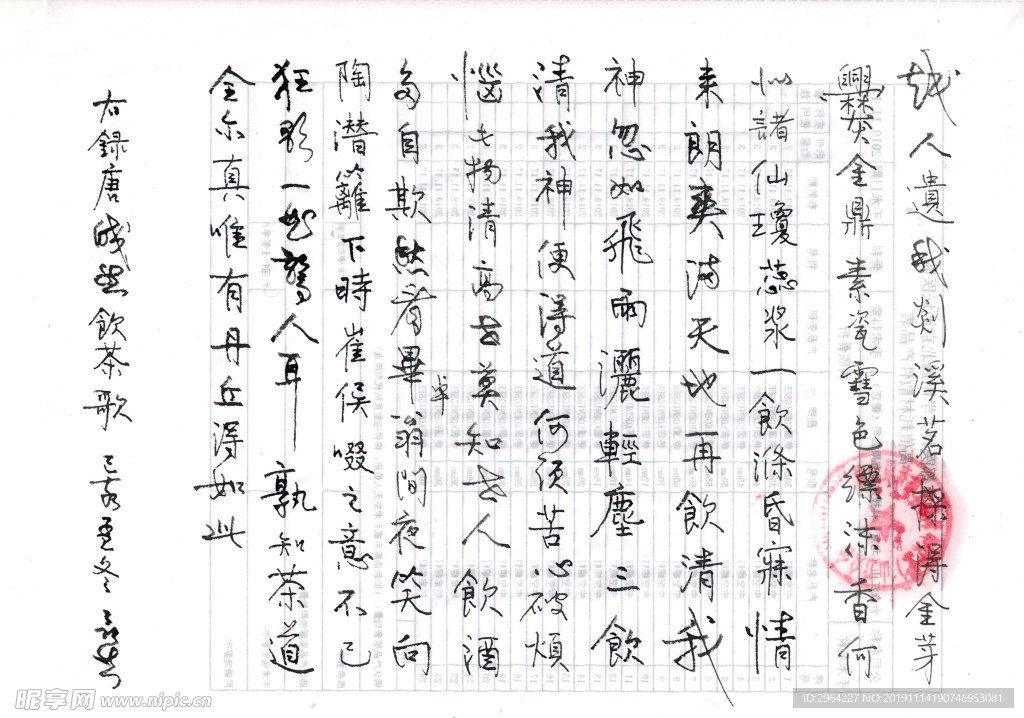 越人遺我剡溪茗採得金芽
爨金鼎素瓷雪色縹沫香何
似諸仙瓊蕊漿一飲滌昏寐情
来朗爽满天地再飲清我
神忽如飛雨灑輕塵三飲
清我神便得道何须苦心破煩
惱此物清高世莫知世人飲酒
多自欺愁看畢翁間夜笑向
卓
陶潜籬下時崔侯啜之意不已
狂歌一曲驚人耳孰知茶道
全尔真唯有丹丘得如此
右録唐皎然飲茶歌 己亥冬
昵享网 www.nipic.cn
ID:2964227 NO:20191114190746953081